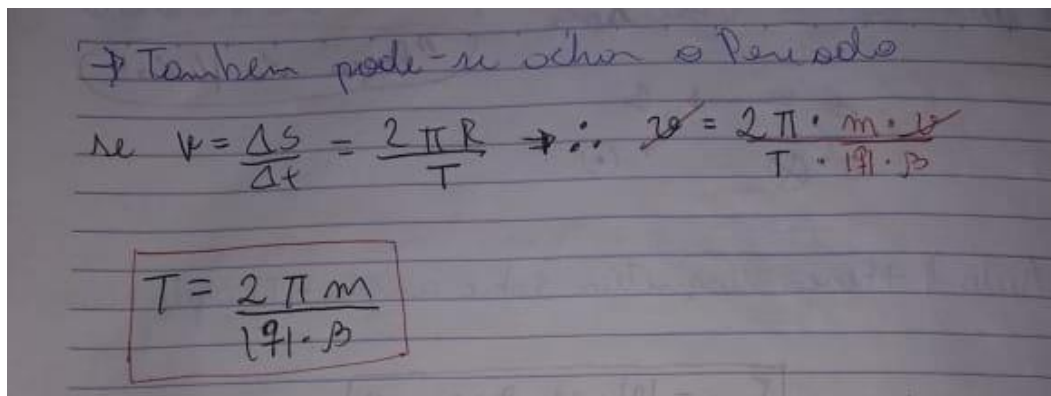 → Também pode-se achar o Período
se v = ΔS/Δt = 2πR/T → ∴ v = 2π · m · v/T · |q| · B
T = 2πm/|q| · B